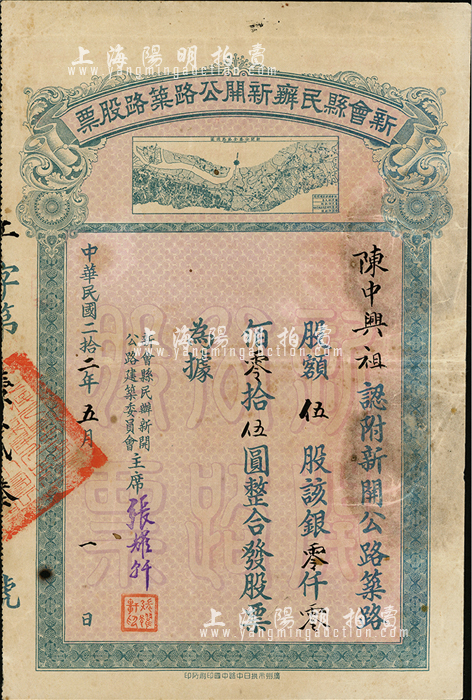 上海陽明拍賣
www.yangmingauction.com
新會縣民辦新開公路築路股票
陳中興祖認附新開公路築路
股額伍股該銀零仟零
佰零拾伍圓整合發股票
為據
新會縣民辦新開
公路建築委員會主席張
中華民國二拾二年五月一日
字第
號
上海陽明拍賣
www.yangmingauction.com
上海陽明拍賣
www.yangmingauction.com